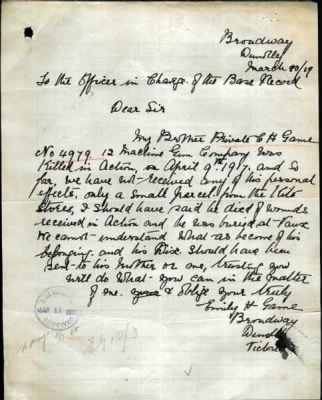 Broadway
Dunolly
March 20/19
To the Officer in Charge of the Base Record
Dear Sir
My Brother Private C H Game
No 4979 13 Machine Gun Company was
Killed in Action on April 9th 1917. and so
far, we have not received any of his personal
effects, only a small parcel from the Kitt
Stores, I should have said he died of wounds
received in Action and he was buried at Vaux
We cannot understand what as become of his
belonging. and his Disc should have been
sent to his Mother or me, trusting you
will do what you can in the matter
of me. & oblige yours truly
Emily H Game
Broadway
Dunolly